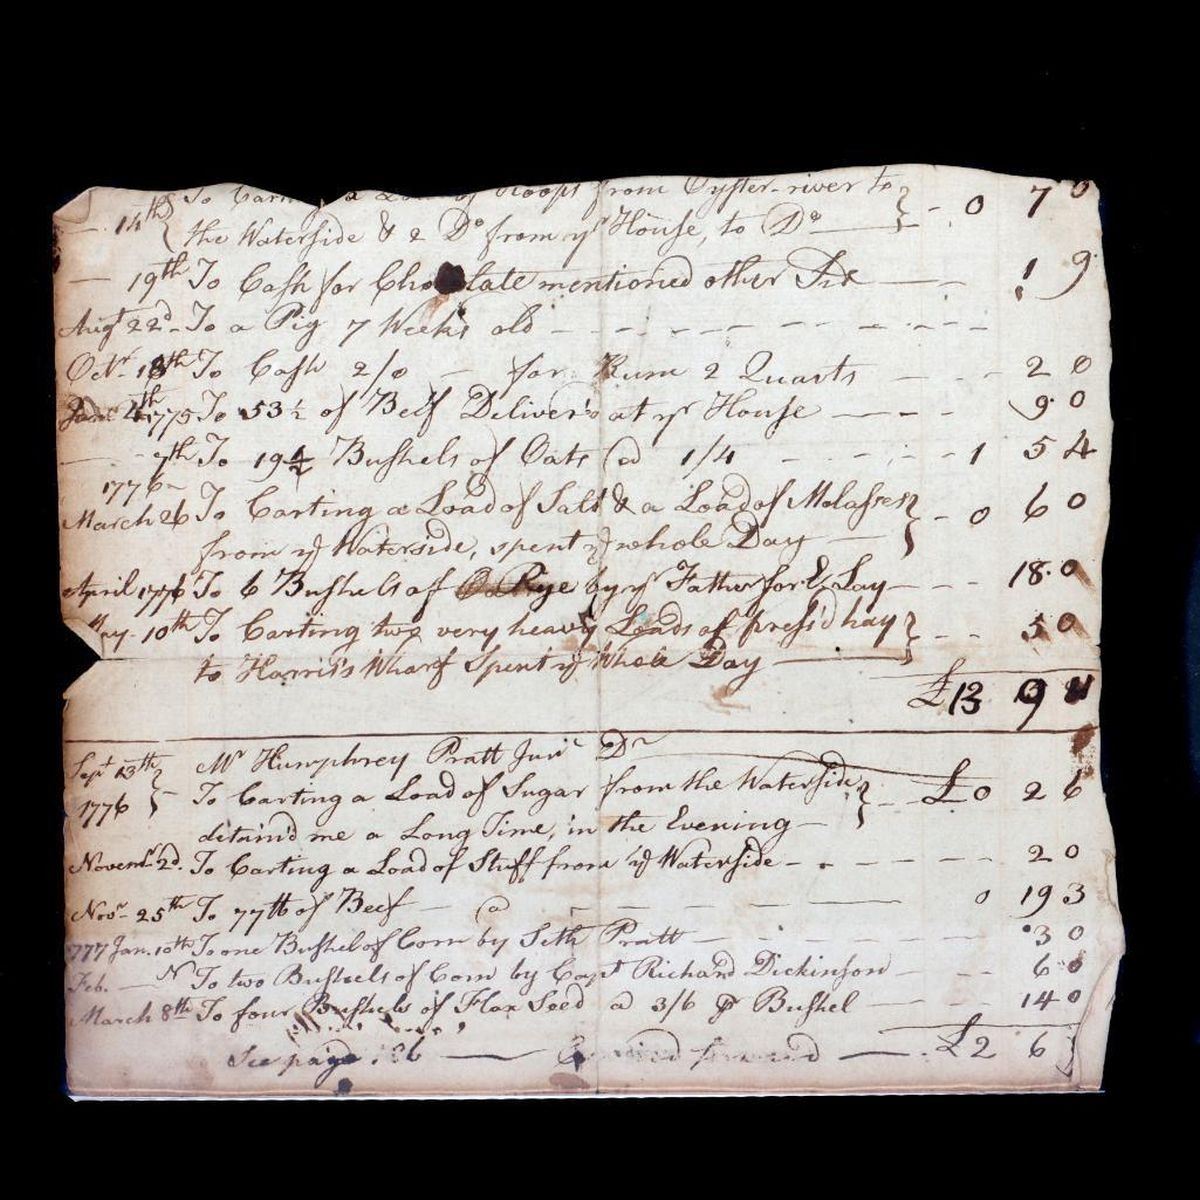 14th To Carting a Load of Hoops from Oyster-river to
the Waterside & 2 Do from yr House, to Do - 0 7 0
19th To Cash for Chocolate mentioned other Side 1 9
Augt 22d To a Pig 7 Weeks old
Octr 18th To Cash 2/0 for Rum 2 Quarts 2 0
4th 1775 To 53 1/2 of Beef Deliver'd at yr House 9 0
7th To 19 Bushels of Oats @ 1/4 1 5 4
1776
March 26 To Carting a Load of Salt & a Load of Molasses - 0 6 0
from ye Waterside, spent ye whole Day
April 1776 To 6 Bushels of Rye by yr Father for E Lay 18.0
May 10th To Carting two very heavy Loads of press'd hay 5 0
to Harris's Wharf Spent ye Whole Day
£ 9
Mr Humphrey Pratt Junr Dr
Sept 13th To Carting a Load of Sugar from the Waterside £0 2 6
1776 detain'd me a Long Time, in the Evening
Novemr 2d. To Carting a Load of Stuff from ye Waterside 2 0
Novr 25th To 77 lb of Beef a 0 19 3
1777 Jan. 10th To one Bushel of Corn by Seth Pratt 3 0
Feb. To two Bushels of Corn by Capt Richard Dickinson 6 0
March 8th To four Bushels of Flax Seed a 3/6 ⅌ Bushel 14 0
See page Carried forward £2 6